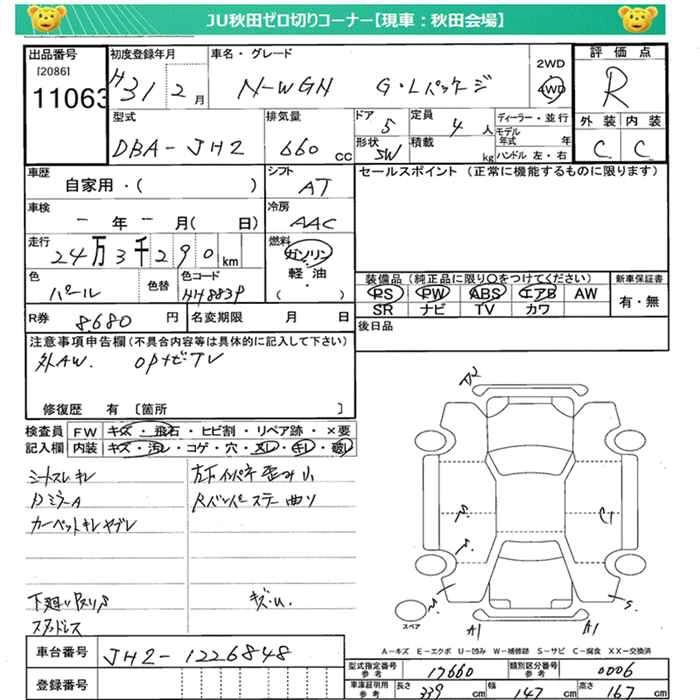 JU秋田ゼロ切りコーナー【現車：秋田会場】
出品番号 初度登録年月 車名・グレード 評価点
[2086] 11063 H31 2月 N-WGN G・Lパッケージ 2WD 4WD R
型式 排気量 ドア 定員 ディーラー・並行 外装 内装
DBA-JH2 660cc 5 4人 モデル年式 年 C C
形状 SW 積載 kg ハンドル 左・右
車歴 シフト セールスポイント（正常に機能するものに限ります）
自家用・( ) AT
車検 冷房
ー年ー月( 日) AAC
走行 燃料
24万3千290km ガソリン
色 色替 色コード 軽油
パール NH883P ( )
装備品（純正品に限り○をつけてください） 新車保証書
PS PW ABS エアB AW 有・無
SR ナビ TV カワ
R券 8680円 名変期限 月 日 後日品
注意事項申告欄（不具合内容等は具体的に記入して下さい）
外AW. OPナビTV
修復歴 有 [箇所 ]
検査員 FW キズ・飛石・ヒビ割・リペア跡・×要
記入欄 内装 キズ・汚レ・コゲ・穴・スレ・キレ・破レ
シートスレキレ
DミラーA
カーペットキレヤブレ
Rバンパーステー曲り
下廻りサビ
スタッドレス
キズ・U.
A2
C1
A1 A1
スペア
A－キズ E－エクボ U－凹み W－補修跡 S－サビ C－腐食 XX－交換済
車台番号 JH2-1226848
登録番号
型式指定番号 参考 17660 類別区分番号 参考 0006
車庫証明用 参考 長さ 339cm 幅 147cm 高さ 167cm